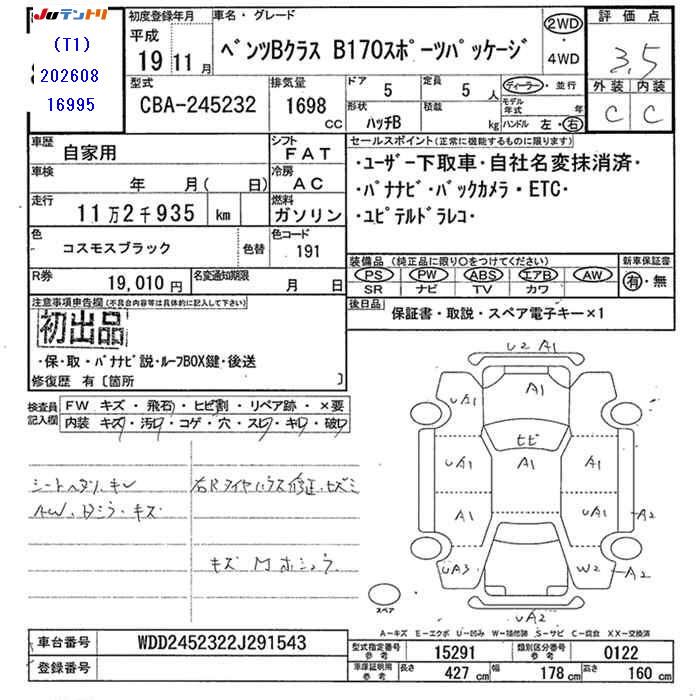 JUテントリ
(T1)
202608
16995
初度登録年月
平成
19 11 月
車名・グレード
ベンツBクラス B170スポーツパッケージ
2WD
・
4WD
評価点
3.5
外装 内装
C C
型式
CBA-245232
排気量
1698 CC
ドア
5
定員
5 人
形状
ハッチB
積載
kg
ディーラー・並行
モデル年式 年
ハンドル 左・右
車歴
自家用
シフト
FAT
車検
年 月( 日)
冷房
AC
走行
11万2千935 km
燃料
ガソリン
色
コスモスブラック
色替
色コード
191
R券
19,010円
名変通知期限
月 日
セールスポイント(正常に機能するものに限ります)
・ユーザー下取車・自社名変抹消済・
・バナナビ・バックカメラ・ETC・
・ユピテルドラレコ・
装備品(純正品に限り○をつけてください)
PS PW ABS エアB AW
SR ナビ TV カワ
新車保証書
有・無
後日品
保証書・取説・スペア電子キー×1
注意事項申告欄(不具合内容等は具体的に記入して下さい)
初出品
・保・取・バナナビ説・ルーフBOX鍵・後送
修復歴 有〔箇所 〕
検査員記入欄
FW キズ・飛石・ヒビ割・リペア跡・×要
内装 キズ・汚レ・コゲ・穴・スレ・キレ・破レ
シートヘタリ、キレ
AW、Bミラーキズ
右Rタイヤハウス修正、ヒズミ
キズ M ホシュウ
U2 A1
UA1
A1
A1
ヒビ
UA1
A1
A1
A1
UA1
A2
UA3
W2
A2
UA2
スペア
A-キズ E-エクボ U-凹み W-補修跡 S-サビ C-腐食 XX-交換済
車台番号
WDD2452322J291543
登録番号
型式指定番号 参考
15291
類別区分番号 参考
0122
車庫証明用 参考
長さ 427 cm
幅 178 cm
高さ 160 cm